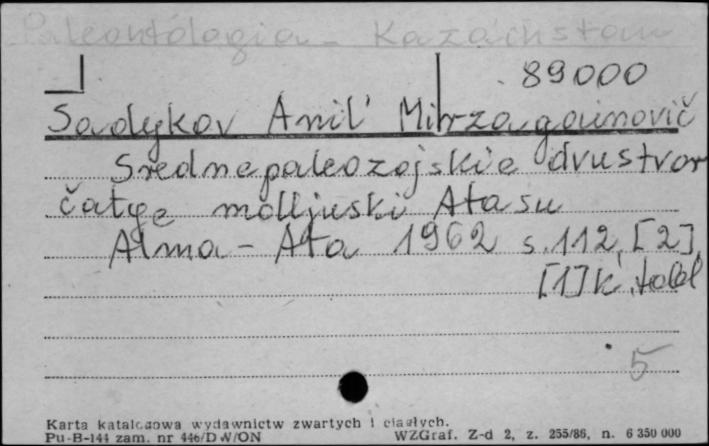 Paleontologia - Kazachstan
89000
Sadykov Anil' Mirzagainovič
Srednepaleozojskie dvustvor
čatye molljuski Atasu
Alma-Ata 1962 s.112, [2],
[1] k. tabl
5
Karta katalogowa wydawnictw zwartych i ciągłych.
Pu-B-144 zam. nr 446/DW/ON WZGraf. Z-d 2, z. 255/86, n. 6 350 000